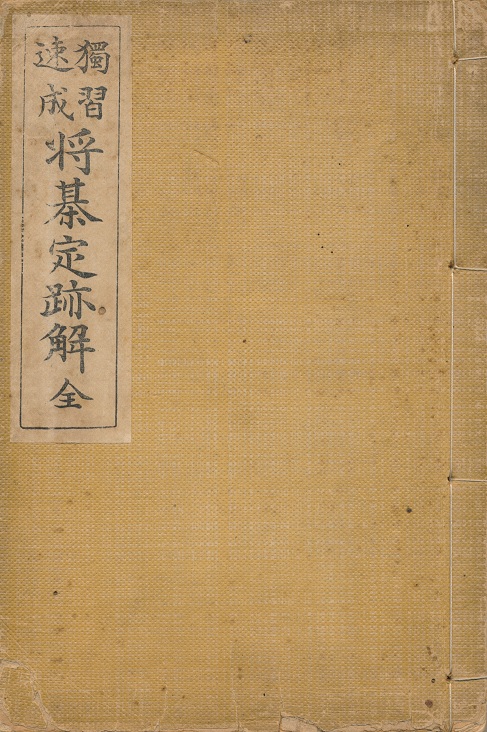 獨習
速成
将棊定跡解 全